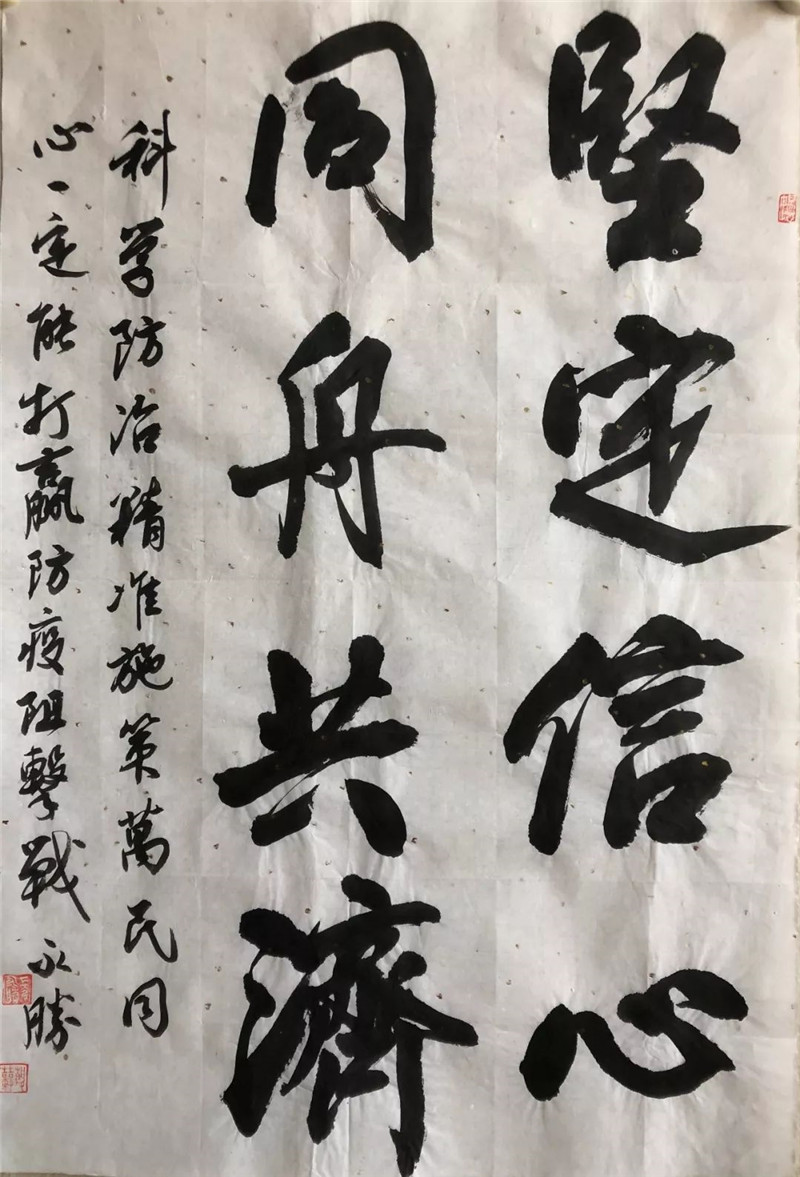 堅定信心
同舟共濟
科学防治精准施策萬民同
心一定能打赢防疫阻擊戰永勝